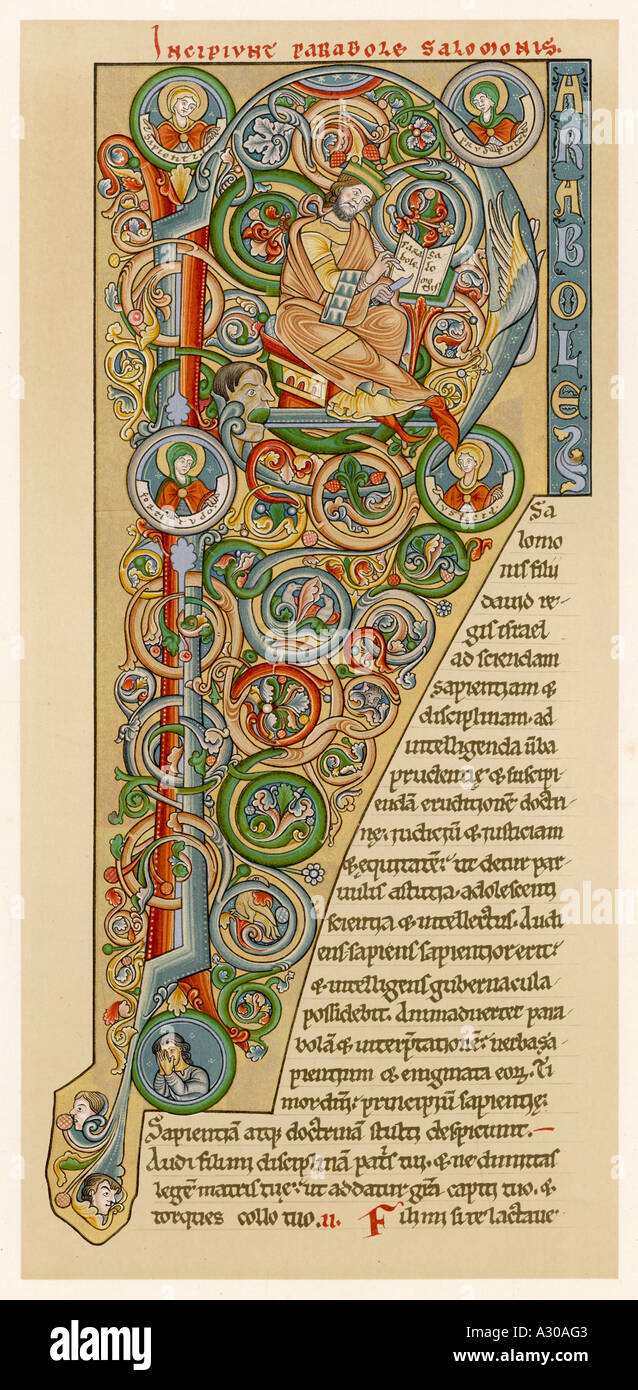 Incipiunt parabole Salomonis.
Sapientia
Prudentia
ARABOLE
Para Sa
bole lo
mo
Sa
lomo
nis filii
dauid re-
gis israel
ad sciendam
sapientiam &
disciplinam. ad
intelligenda ūba
prudentię & suscipi
endā eruditionē doctri
nę. iudiciū & iusticiam
& equitatē. ut detur par
uulis astutia. adolescenti
scientia & intellectus. Audi
ens sapiens sapientior erit:
& intelligens gubernacula
possidebit. Animaduertet para
bolā & interp̄tationē. uerba sa
pientium & enigmata eoꝝ. Ti
mor dn̄i: principiū sapientię:
Sapientiā atq; doctrinam stulti despiciunt.
Audi fili mi disciplinā patris tui. & ne dimittas
legē matris tuę: ut addatur gr̄a capiti tuo. &
torques collo tuo. ii. Fili mi si te lactaue
alamy
Image ID: A30AG3
www.alamy.com